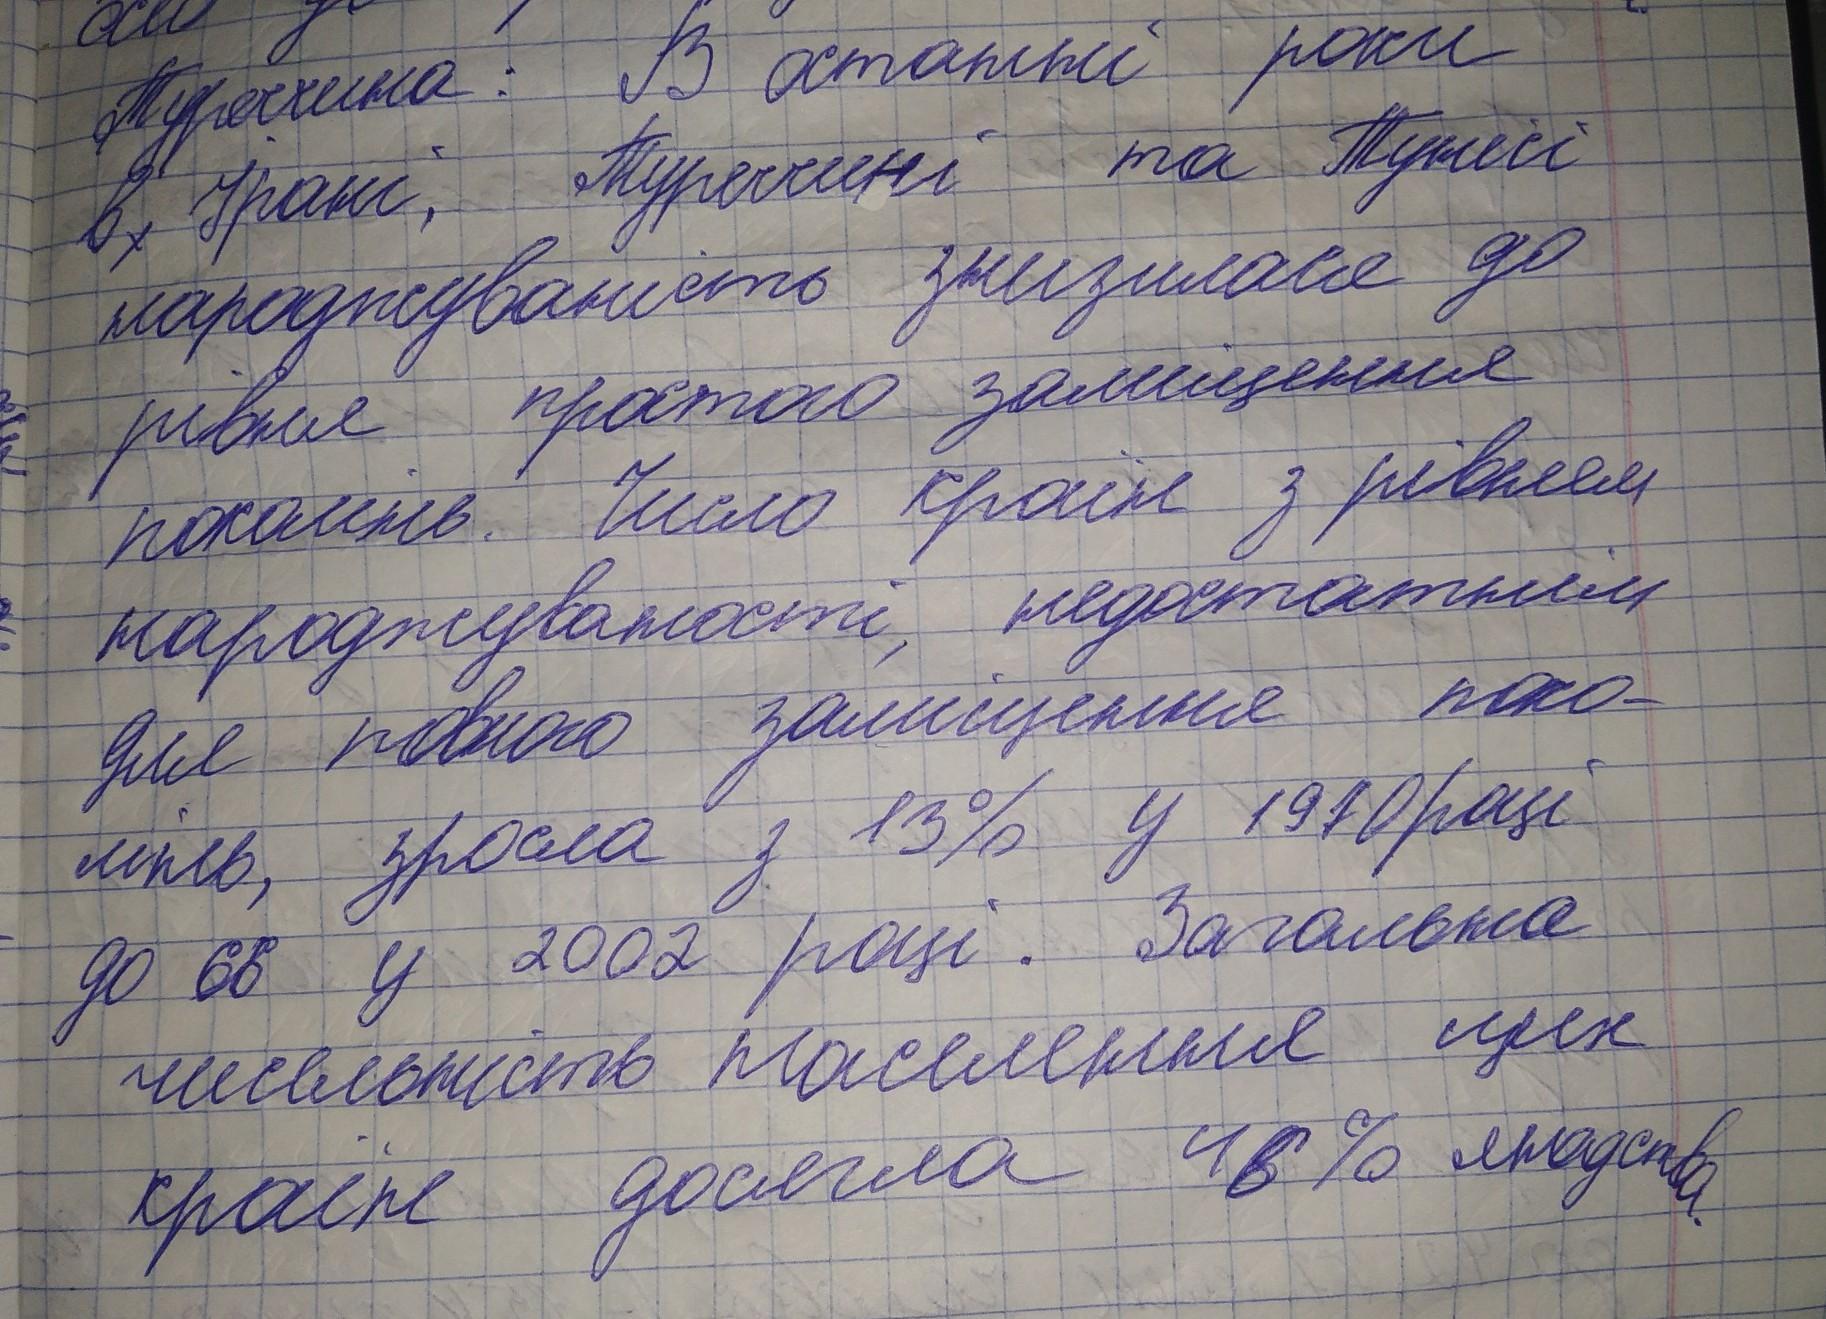 Туреччина: В останні роки
в Ірані, Туреччині та Тунісі
народжуваність знизилася до
рівня простого заміщення
поколінь. Число країн з рівнем
народжуваності, недостатнім
для повного заміщення поко-
лінь, зросла з 13% у 1970 році
до 66 у 2002 році. Загальна
чисельність населення цих
країн досягла 46% людства.